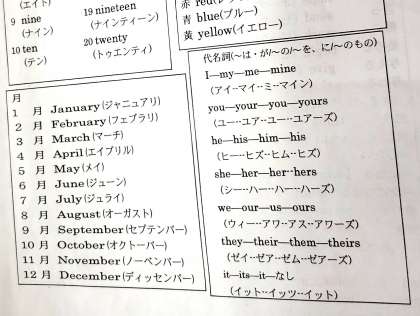 (エイト)
9 nine
(ナイン)
10 ten
(テン)
19 nineteen
(ナインティーン)
20 twenty
(トゥエンティ)
青 blue(ブルー)
黄 yellow(イエロー)
月
1 月 January(ジャニュアリ)
2 月 February(フェブラリ)
3 月 March(マーチ)
4 月 April(エイプリル)
5 月 May(メイ)
6 月 June(ジューン)
7 月 July(ジュライ)
8 月 August(オーガスト)
9 月 September(セプテンバー)
10 月 October(オクトーバー)
11 月 November(ノーベンバー)
12 月 December(ディッセンバー)
代名詞(〜は・が/〜の/〜を、に/〜のもの)
I―my―me―mine
(アイ‥マイ‥ミ‥マイン)
you―your―you―yours
(ユー‥ユア‥ユー‥ユアーズ)
he―his―him―his
(ヒー‥ヒズ‥ヒム‥ヒズ)
she―her―her―hers
(シー‥ハー‥ハー‥ハーズ)
we―our―us―ours
(ウィー‥アワ‥アス‥アワーズ)
they―their―them―theirs
(ゼイ‥ゼア‥ゼム‥ゼアーズ)
it―its―it―なし
(イット‥イッツ‥イット)